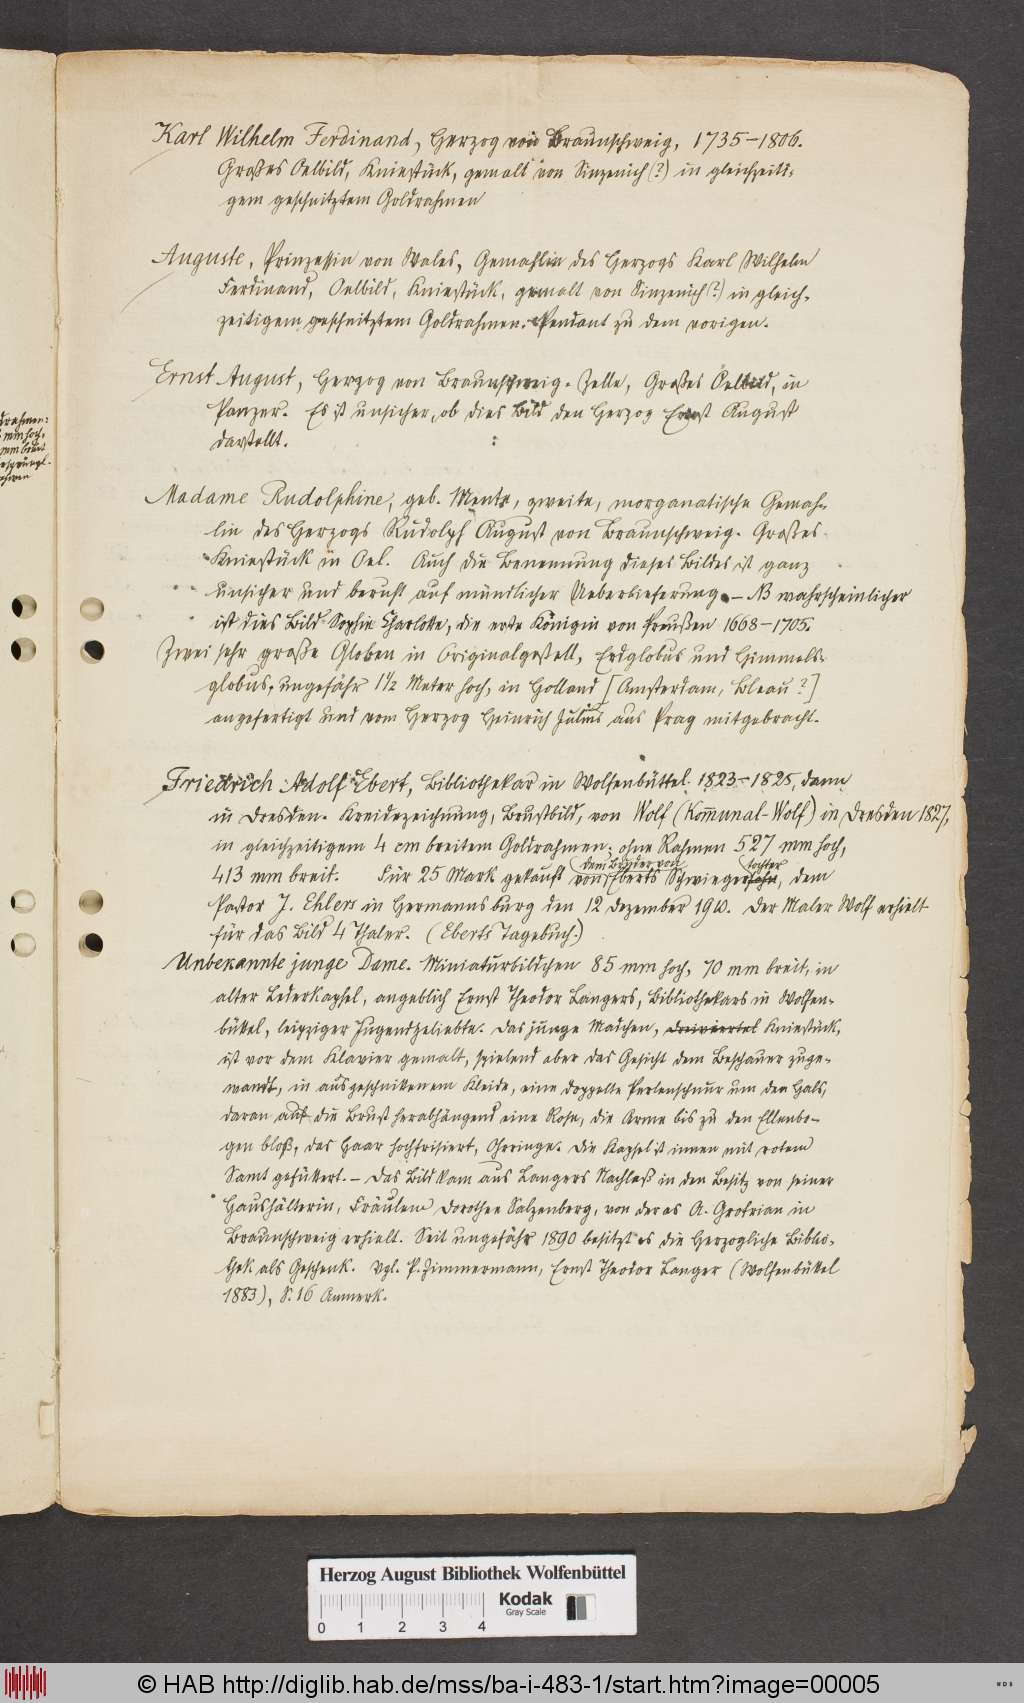 Karl Wilhelm Ferdinand, Herzog von Braunschweig, 1735–1806.
Großes Oelbild, Kniestück, gemalt von Sinzenich (?) in gleichzeiti-
gem geschnitztem Goldrahmen
Auguste, Prinzessin von Wales, Gemahlin des Herzogs Karl Wilhelm
Ferdinand, Oelbild, Kniestück, gemalt von Sinzenich (?) in gleich-
zeitigem geschnitztem Goldrahmen. Pendant zu dem vorigen.
Ernst August, Herzog von Braunschweig-Zelle, Großes Oelbild, in
Panzer. Es ist unsicher, ob dies Bild den Herzog Ernst August
darstellt.
Madame Rudolphine, geb. Mente, zweite, morganatische Gemah-
lin des Herzogs Rudolf August von Braunschweig. Großes
Kniestück in Oel. Auch die Benennung dieses Bildes ist ganz
unsicher und beruht auf mündlicher Ueberlieferung. – NB wahrscheinlicher
ist dies Bild Sophie Charlotte, die erste Königin von Preußen 1668–1705.
Zwei sehr große Globen in Originalgestell, Erdglobus und Himmels-
globus, ungefähr 1½ Meter hoch, in Holland [Amsterdam, Bleau?]
angefertigt und vom Herzog Heinrich Julius aus Prag mitgebracht.
Friedrich Adolf Ebert, Bibliothekar in Wolfenbüttel 1823–1825, dann
in Dresden. Kreidezeichnung, Brustbild, von Wolf (Kom̅unal-Wolf) in Dresden 1827,
in gleichzeitigem 4 cm breitem Goldrahmen; ohne Rahmen 527 mm hoch,
dem Bruder von tochter
413 mm breit. Für 25 Mark gekauft von Eberts Schwiegersohn, dem
Pastor J. Ehlers in Hermannsburg den 12 Dezember 1910. Der Maler Wolf erhielt
für das Bild 4 Thaler. (Eberts Tagebuch.)
Unbekannte junge Dame. Miniaturbildchen 85 mm hoch, 70 mm breit, in
alter Lederkapsel, angeblich Ernst Theodor Langers, Bibliothekars in Wolfen-
büttel, leipziger Jugendgeliebte. Das junge Mädchen, dreiviertel Kniestück,
ist vor dem Klavier gemalt, spielend aber das Gesicht dem Beschauer zuge-
wandt, in ausgeschnittenem Kleide, eine doppelte Perlenschnur um den Hals,
daran auf die Brust herabhängend eine Rose, die Arme bis zu den Ellenbo-
gen bloß, das Haar hochfrisiert, Ohrringe. Die Kapsel ist innen mit rotem
Samt gefüttert. – Das Bild kam aus Langers Nachlaß in den Besitz von seiner
Haushälterin, Fräulein Dorothee Salzenberg, von der es A. Grotrian in
Braunschweig erhielt. Seit ungefähr 1890 besitzt es die Herzogliche Biblio-
thek als Geschenk. Vgl. P. Zimmermann, Ernst Theodor Langer (Wolfenbüttel
1883), S. 16 Anmerk.
mm hoch,
mm breit
Herzog August Bibliothek Wolfenbüttel
Kodak
Gray Scale
0 1 2 3 4
© HAB http://diglib.hab.de/mss/ba-i-483-1/start.htm?image=00005